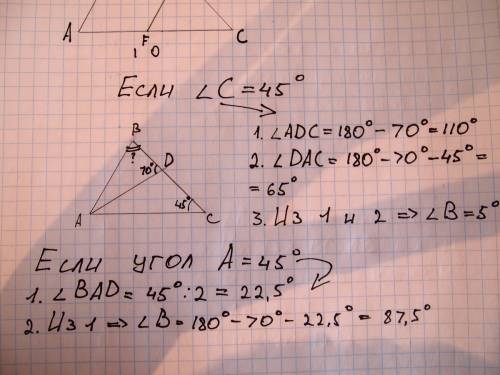 A F C
1 0
Если ∠C = 45°
B
?
70°
D
45°
A
C
1. ∠ADC = 180° - 70° = 110°
2. ∠DAC = 180° - 70° - 45° =
= 65°
3. Из 1 и 2 => ∠B = 5°
Если угол A = 45°
1. ∠BAD = 45° : 2 = 22,5°
2. Из 1 => ∠B = 180° - 70° - 22,5° = 87,5°